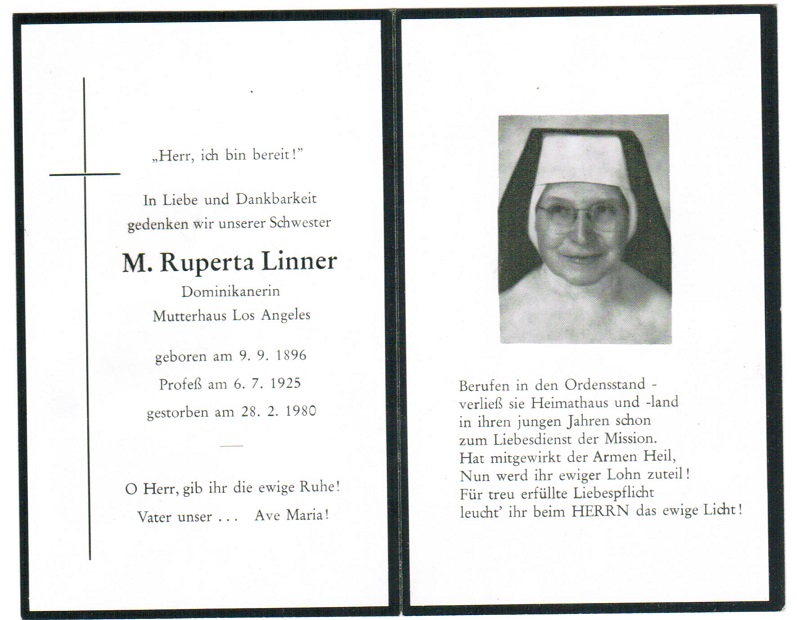 „Herr, ich bin bereit!"
In Liebe und Dankbarkeit
gedenken wir unserer Schwester
M. Ruperta Linner
Dominikanerin
Mutterhaus Los Angeles
geboren am 9. 9. 1896
Profeß am 6. 7. 1925
gestorben am 28. 2. 1980
O Herr, gib ihr die ewige Ruhe!
Vater unser . . . Ave Maria!
Berufen in den Ordensstand -
verließ sie Heimathaus und -land
in ihren jungen Jahren schon
zum Liebesdienst der Mission.
Hat mitgewirkt der Armen Heil,
Nun werd ihr ewiger Lohn zuteil!
Für treu erfüllte Liebespflicht
leucht' ihr beim HERRN das ewige Licht!